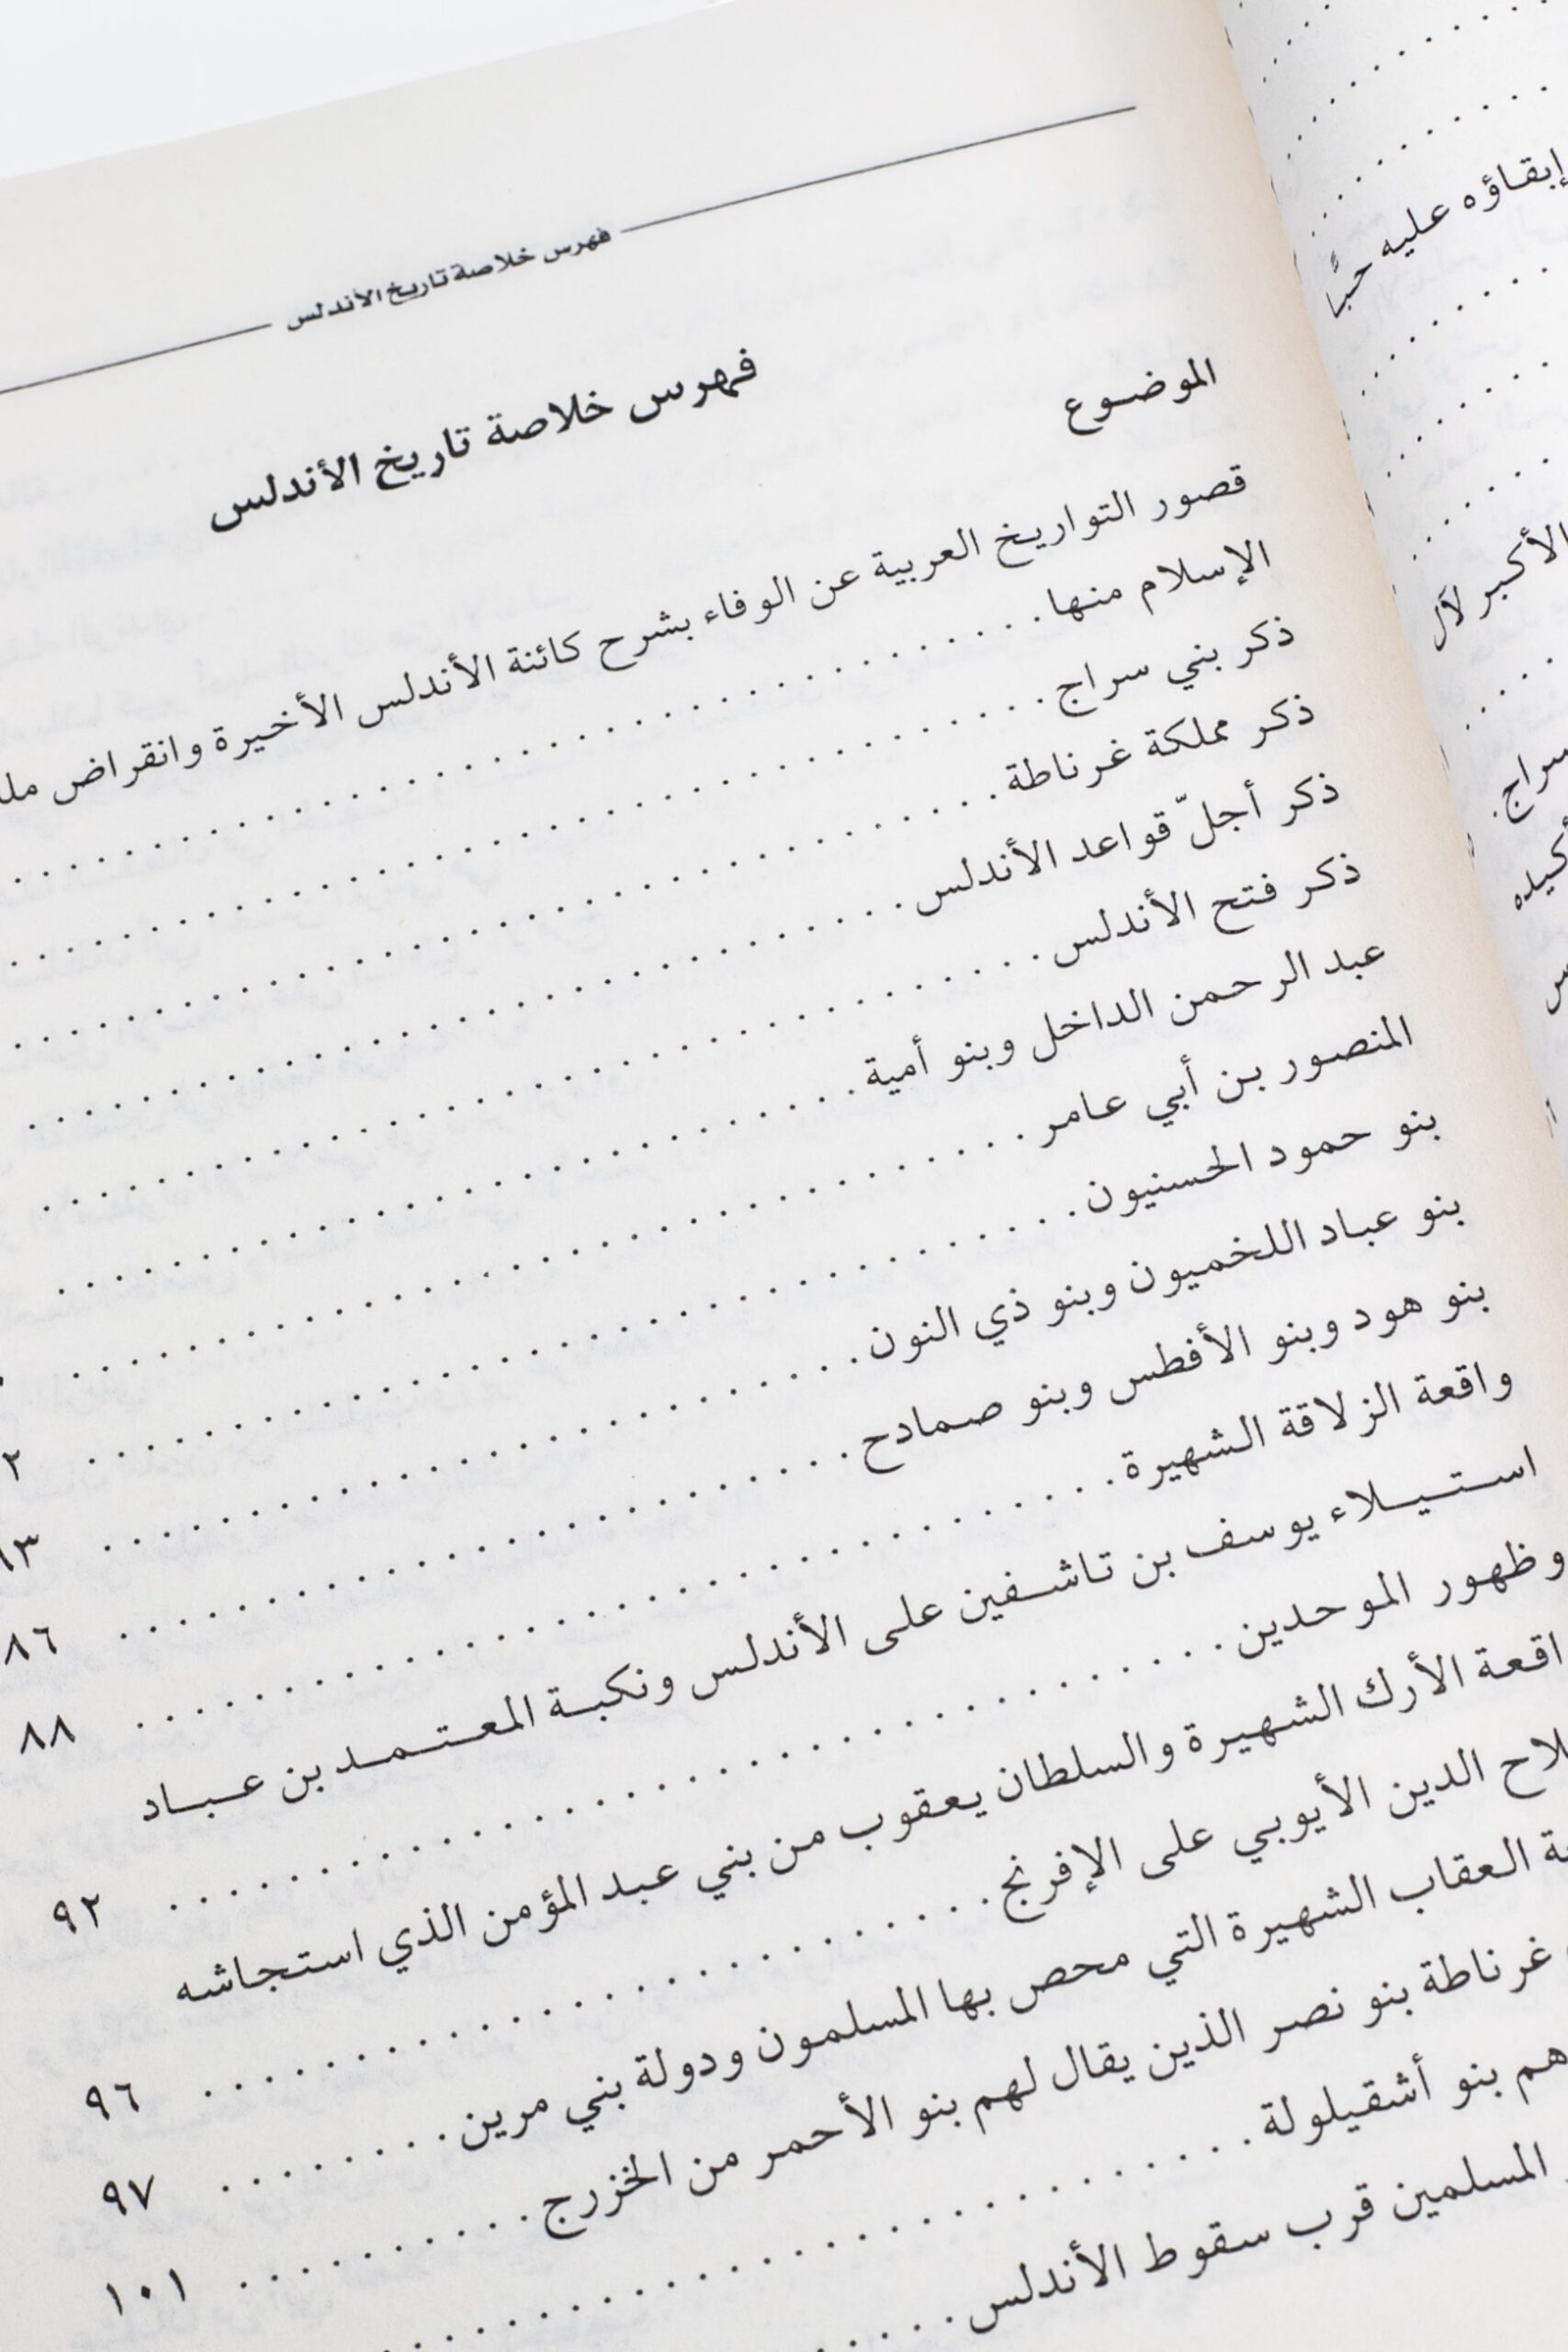 فهرس خلاصة تاريخ الأندلس
فهرس خلاصة تاريخ الأندلس
الموضوع
قصور التواريخ العربية عن الوفاء بشرح كائنة الأندلس الأخيرة وانقراض
الإسلام منها
ذكر بني سراج
ذكر مملكة غرناطة
ذكر أجلّ قواعد الأندلس
ذكر فتح الأندلس
عبد الرحمن الداخل وبنو أمية
المنصور بن أبي عامر
بنو حمود الحسنيون
بنو عباد اللخميون وبنو ذي النون
بنو هود وبنو الأفطس وبنو صمادح ٨٦
واقعة الزلاقة الشهيرة ٨٨
استيلاء يوسف بن تاشفين على الأندلس ونكبة المعتمد بن عباد
وظهور الموحدين ٩٢
الأرك الشهيرة والسلطان يعقوب من بني عبد المؤمن الذي استجاشه
الدين الأيوبي على الإفرنج ٩٦
العقاب الشهيرة التي محص بها المسلمون ودولة بني مرين ٩٧
غرناطة بنو نصر الذين يقال لهم بنو الأحمر من الخزرج ١٠١
هم بنو أشقيلولة
المسلمين قرب سقوط الأندلس
إبقاؤه عليه حبًا
الأكبر لآل